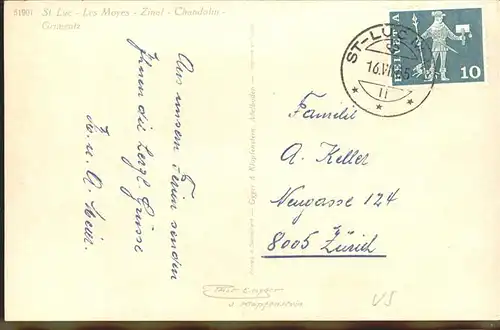 51901 St Luc - Les Moyes - Zinal - Chandolin -
Grimentz
Aus unsern Ferien senden
Ihnen die herzl. Grüsse
Fr. u. A. Meier.
ST-LUC
16.VI
HELVETIA
10
Familie
A. Keller
Neugasse 124
8005 Zürich
Gyger & Klopfenstein, Adelboden
Gyger
& Klopfenstein
VS